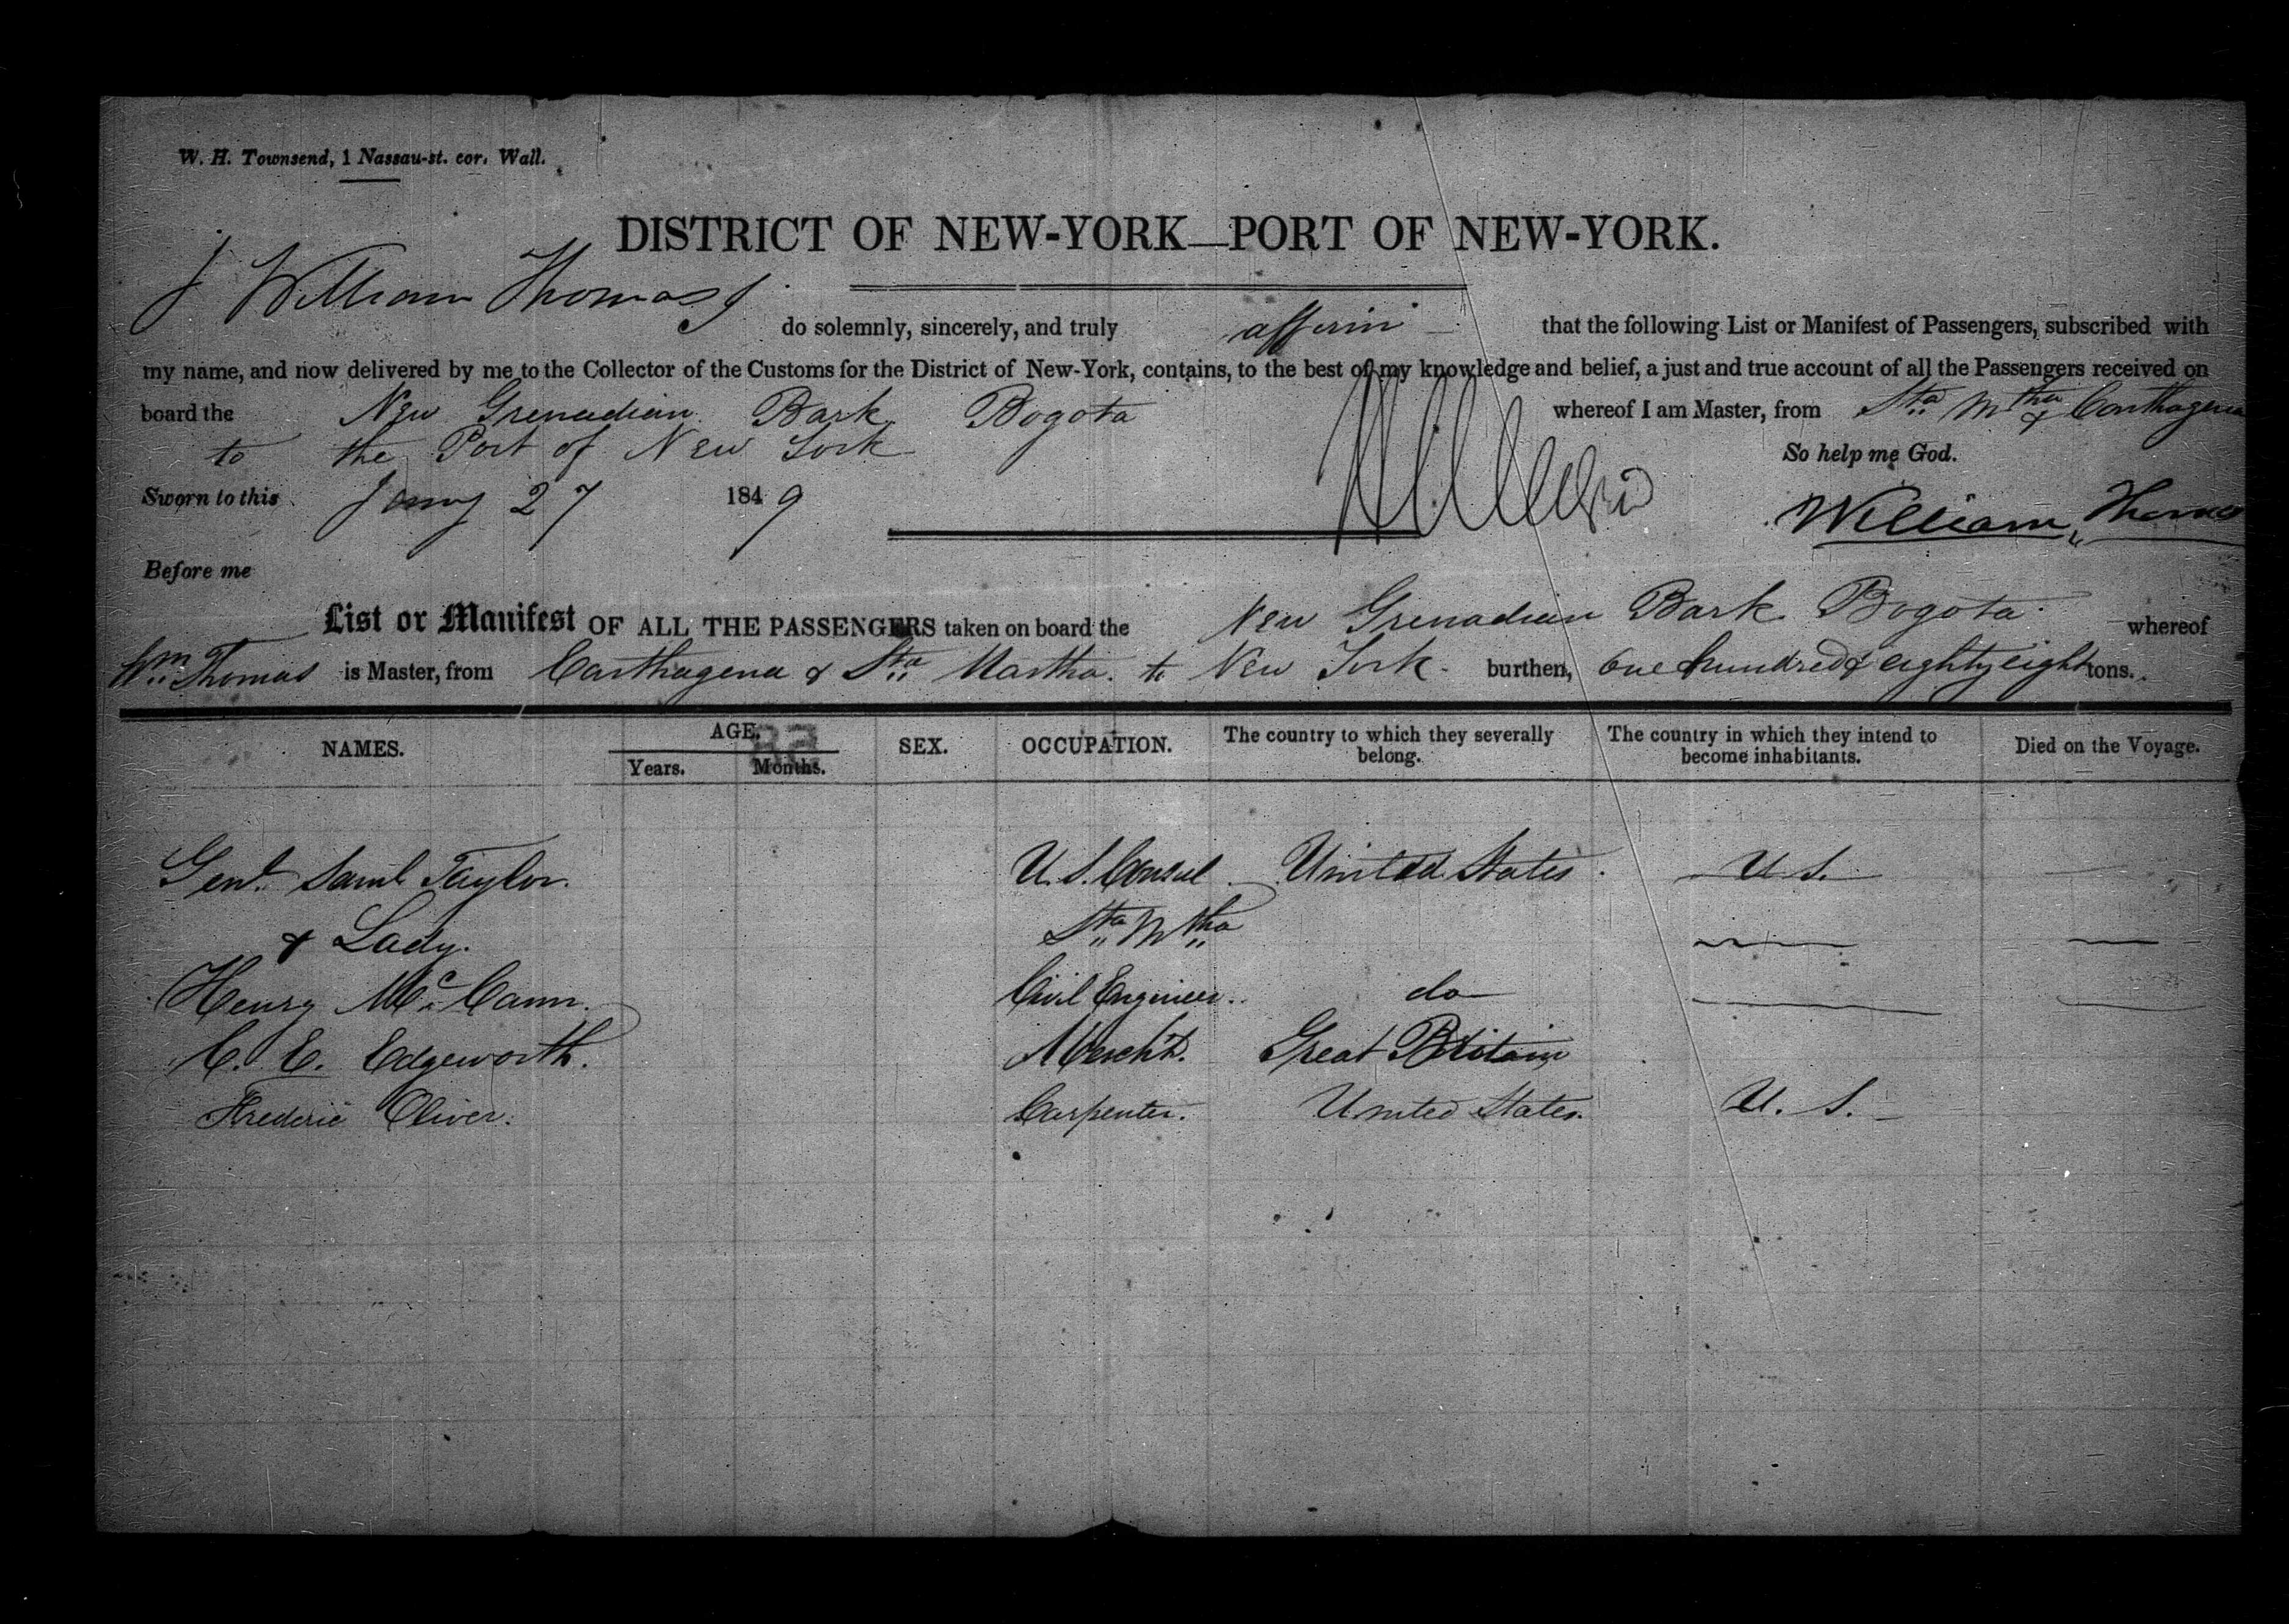 W. H. Townsend, 1 Nassau-st. cor. Wall.
DISTRICT OF NEW-YORK—PORT OF NEW-YORK.
I William Thomas do solemnly, sincerely, and truly affirm that the following List or Manifest of Passengers, subscribed with
my name, and now delivered by me to the Collector of the Customs for the District of New-York, contains, to the best of my knowledge and belief, a just and true account of all the Passengers received on
board the New Grenadian Bark Bogota whereof I am Master, from Sta Mtha & Carthagena
to the Port of New York So help me God.
Sworn to this Jany 27 1849 William Thomas
Before me
List or Manifest OF ALL THE PASSENGERS taken on board the New Grenadian Bark Bogota whereof
Wm Thomas is Master, from Carthagena & Sta Martha. to New York. burthen, One hundred & eighty eight tons.
NAMES. AGE. SEX. OCCUPATION. The country to which they severally belong. The country in which they intend to become inhabitants. Died on the Voyage.
Years. Months.
Genl. Saml Taylor. U. S. Consul United States. U S.
& Lady. Sta Mtha
Henry McCann. Civil Engineer. do
C. E. Edgeworth. Mercht. Great Britain
Frederic Oliver. Carpenter. United States. U. S.